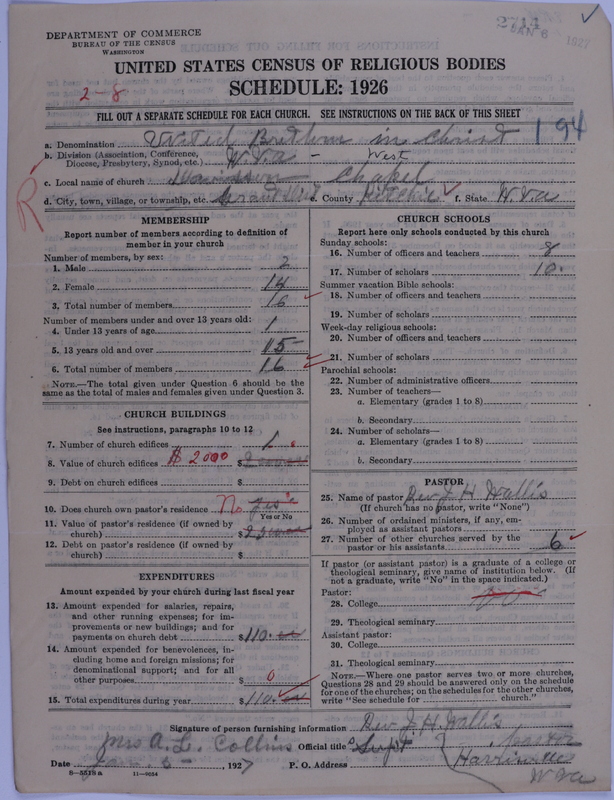 DEPARTMENT OF COMMERCE
BUREAU OF THE CENSUS
WASHINGTON
2714
JAN 6 1927
UNITED STATES CENSUS OF RELIGIOUS BODIES
2-8
SCHEDULE: 1926
FILL OUT A SEPARATE SCHEDULE FOR EACH CHURCH. SEE INSTRUCTIONS ON THE BACK OF THIS SHEET
194
a. Denomination United Brethren in Christ
b. Division (Association, Conference, Diocese, Presbytery, Synod, etc.) W. Va - West
c. Local name of church Chapel
d. City, town, village, or township, etc. Grant Dist e. County Ritchie f. State W. Va
R
MEMBERSHIP
Report number of members according to definition of member in your church
Number of members, by sex:
1. Male 2
2. Female 14
3. Total number of members 16
Number of members under and over 13 years old:
4. Under 13 years of age 1
5. 13 years old and over 15
6. Total number of members 16
NOTE.—The total given under Question 6 should be the same as the total of males and females given under Question 3.
CHURCH BUILDINGS
See instructions, paragraphs 10 to 12
7. Number of church edifices 1
8. Value of church edifices $2000 $
9. Debt on church edifices $
10. Does church own pastor's residence No Yes
Yes or No
11. Value of pastor's residence (if owned by church) $
12. Debt on pastor's residence (if owned by church) $
EXPENDITURES
Amount expended by your church during last fiscal year
13. Amount expended for salaries, repairs, and other running expenses; for improvements or new buildings; and for payments on church debt $110.
14. Amount expended for benevolences, including home and foreign missions; for denominational support; and for all other purposes $ 0
15. Total expenditures during year $110.
CHURCH SCHOOLS
Report here only schools conducted by this church
Sunday schools:
16. Number of officers and teachers 8
17. Number of scholars 10.
Summer vacation Bible schools:
18. Number of officers and teachers
19. Number of scholars
Week-day religious schools:
20. Number of officers and teachers
21. Number of scholars
Parochial schools:
22. Number of administrative officers
23. Number of teachers—
a. Elementary (grades 1 to 8)
b. Secondary
24. Number of scholars—
a. Elementary (grades 1 to 8)
b. Secondary
PASTOR
25. Name of pastor Rev J. H. Wallis
(If church has no pastor, write "None")
26. Number of ordained ministers, if any, employed as assistant pastors
27. Number of other churches served by the pastor or his assistants 6
If pastor (or assistant pastor) is a graduate of a college or theological seminary, give name of institution below. (If not a graduate, write "No" in the space indicated.)
Pastor:
28. College
29. Theological seminary
Assistant pastor:
30. College
31. Theological seminary
NOTE.—Where one pastor serves two or more churches, Questions 28 and 29 should be answered only on the schedule for one of the churches; on the schedules for the other churches, write "See schedule for church."
Signature of person furnishing information Rev J. H. Wallis
Mrs A. L. Collins Official title Supt Pastor
Date Jan. 5 - , 1927 P. O. Address Harrisville
W Va
8-5518 a 11-9034